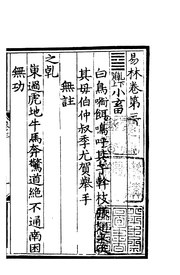 易林卷第三
小畜
白鳥銜餌鳴呼其子斡枝張翅來從
其母伯仲叔季尤賀舉手
無註
之乾
東過虎地牛馬奔驚道絕不通南困
無功